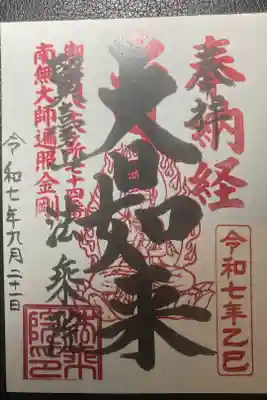 奉納経
令和七年乙巳
大日如来
賢臺山法乗院
南無大師遍照金剛
令和七年九月二十一日